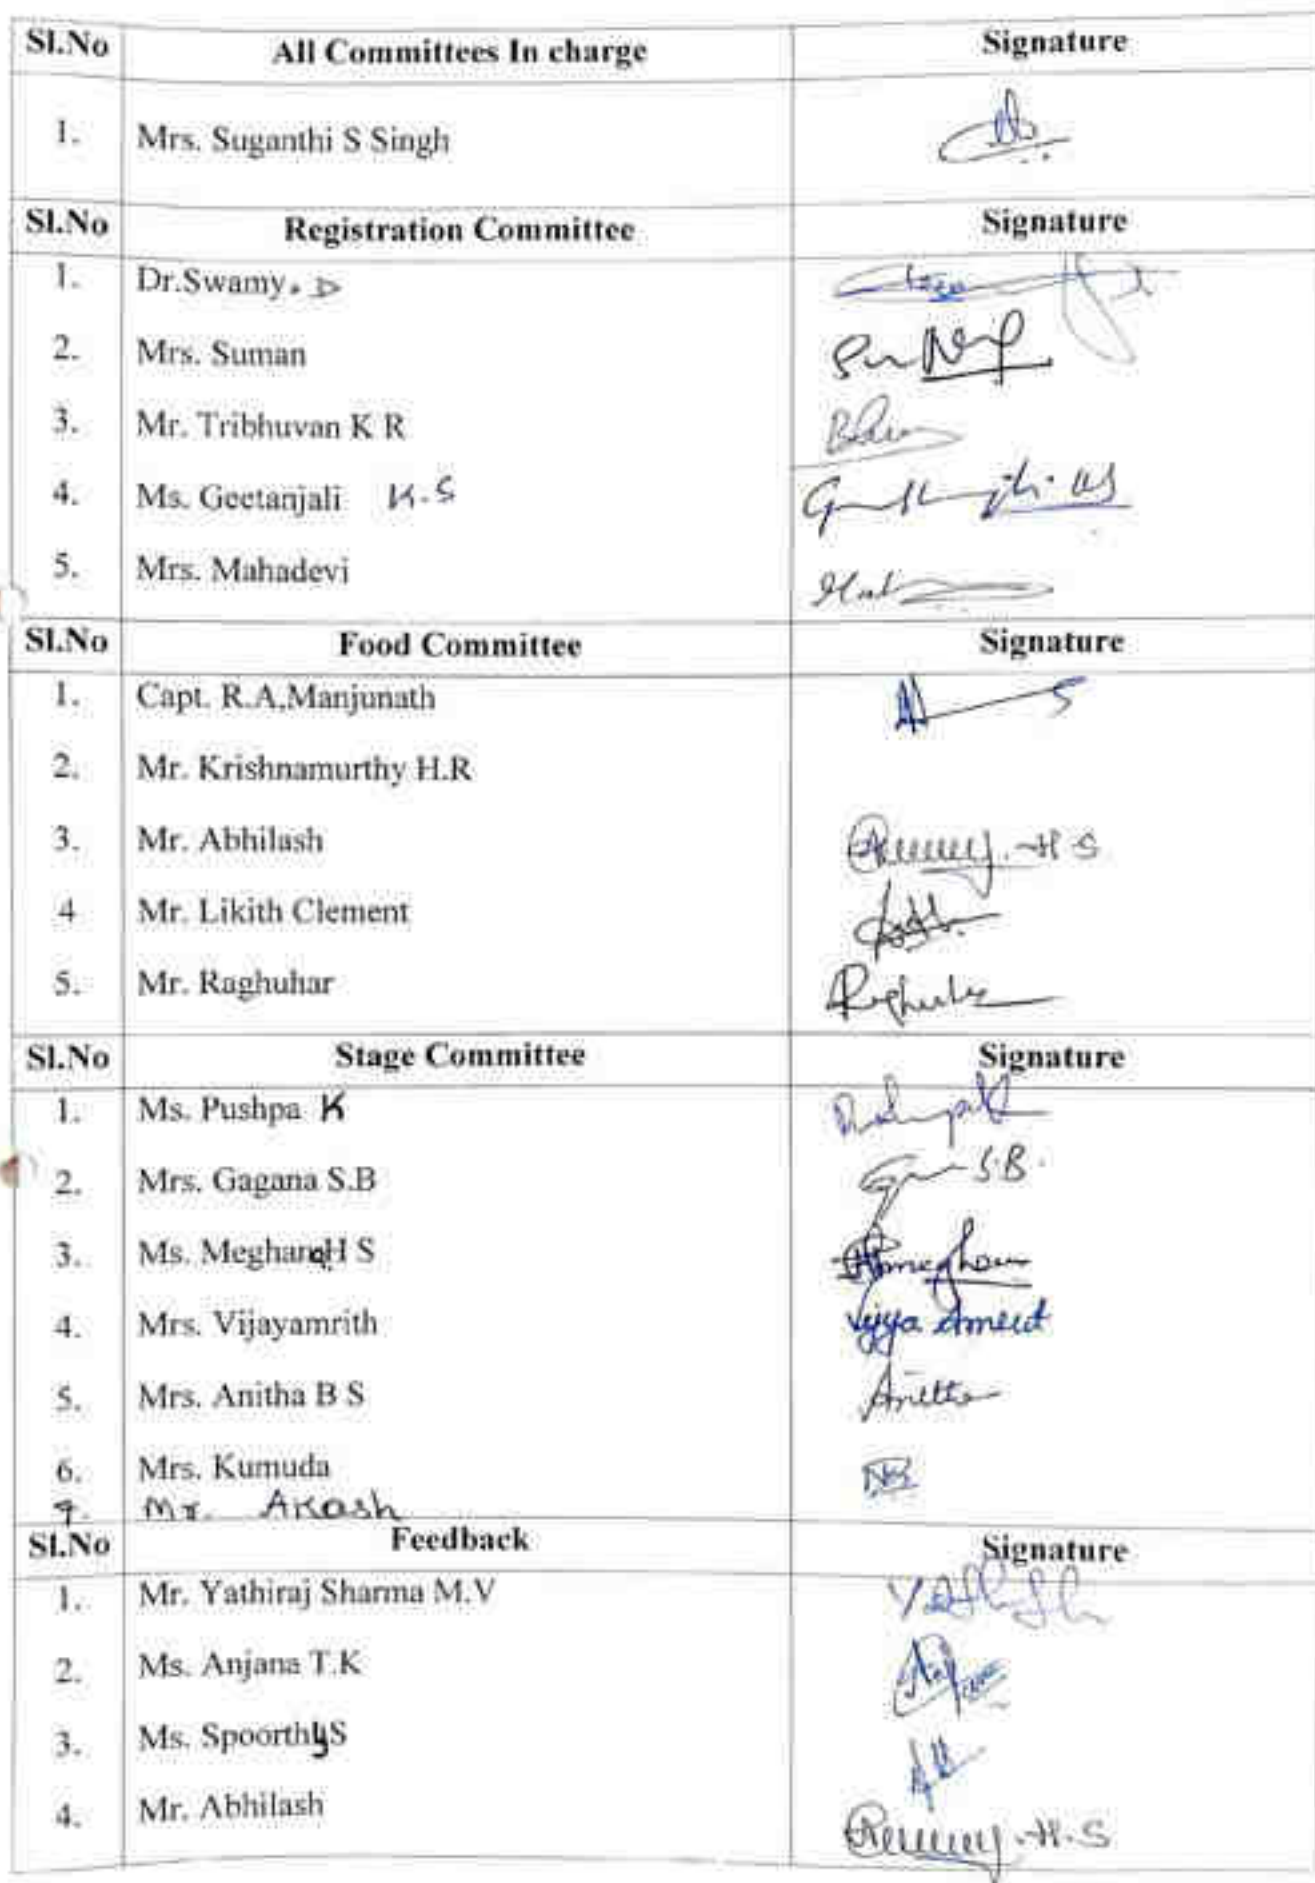 Sl.No All Committees In charge Signature
1. Mrs. Suganthi S Singh
Sl.No Registration Committee Signature
1. Dr.Swamy. D
2. Mrs. Suman
3. Mr. Tribhuvan K R
4. Ms. Geetanjali K.S
5. Mrs. Mahadevi
Sl.No Food Committee Signature
1. Capt. R.A,Manjunath
2. Mr. Krishnamurthy H.R
3. Mr. Abhilash H S
4 Mr. Likith Clement
5. Mr. Raghuhar
Sl.No Stage Committee Signature
1. Ms. Pushpa K
2. Mrs. Gagana S.B S.B.
3. Ms. Meghana H S
4. Mrs. Vijayamrith
5. Mrs. Anitha B S Anitha
6. Mrs. Kumuda
7. Mr. Akash
Sl.No Feedback Signature
1. Mr. Yathiraj Sharma M.V
2. Ms. Anjana T.K
3. Ms. Spoorthy S
4. Mr. Abhilash H.S